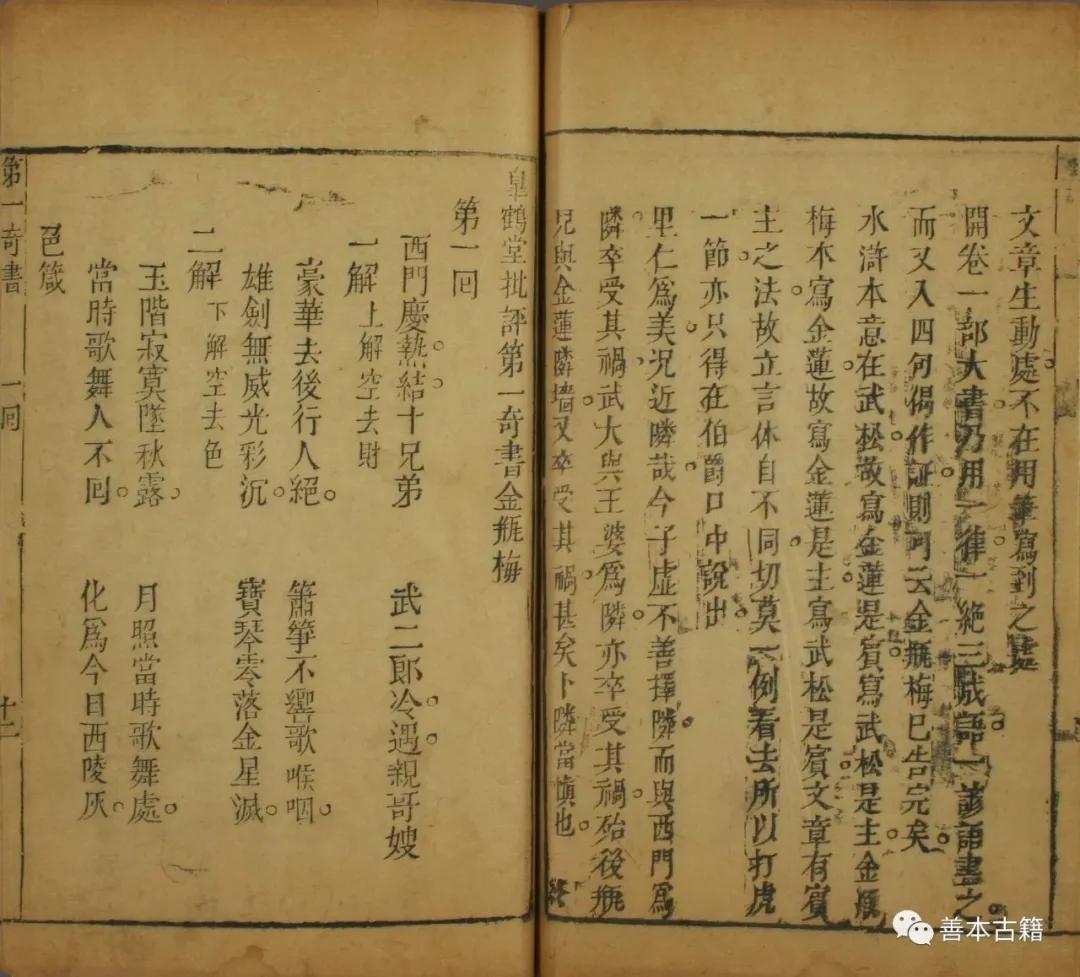 文章生動處不在用筆寫到之處
開卷一部大書乃用一律一絕三成語一諺語盡之
而又入四句偈作証則可云金瓶梅已告完矣
水滸本意在武松故寫金蓮是賓寫武松是主金瓶
梅本寫金蓮故寫金蓮是主寫武松是賓文章有賓
主之法故立言体自不同切莫一例看去所以打虎
一節亦只得在伯爵口中說出
里仁爲美況近隣哉今子虛不善擇隣而與西門爲
隣卒受其禍武大與王婆爲隣亦卒受其禍殆後瓶
兒與金蓮隣墻又卒受其禍甚矣卜隣當慎也
終
皐鶴堂批評第一奇書金瓶梅
第一回
西門慶熱結十兄弟 武二郎冷遇親哥嫂
一解 上解空去財
豪華去後行人絕 簫箏不響歌喉咽
雄劍無威光彩沉 寶琴零落金星滅
二解 下解空去色
玉階寂寞墜秋露 月照當時歌舞處
當時歌舞人不囘 化爲今日西陵灰
色箴
第一奇書 一囘 十二
善本古籍